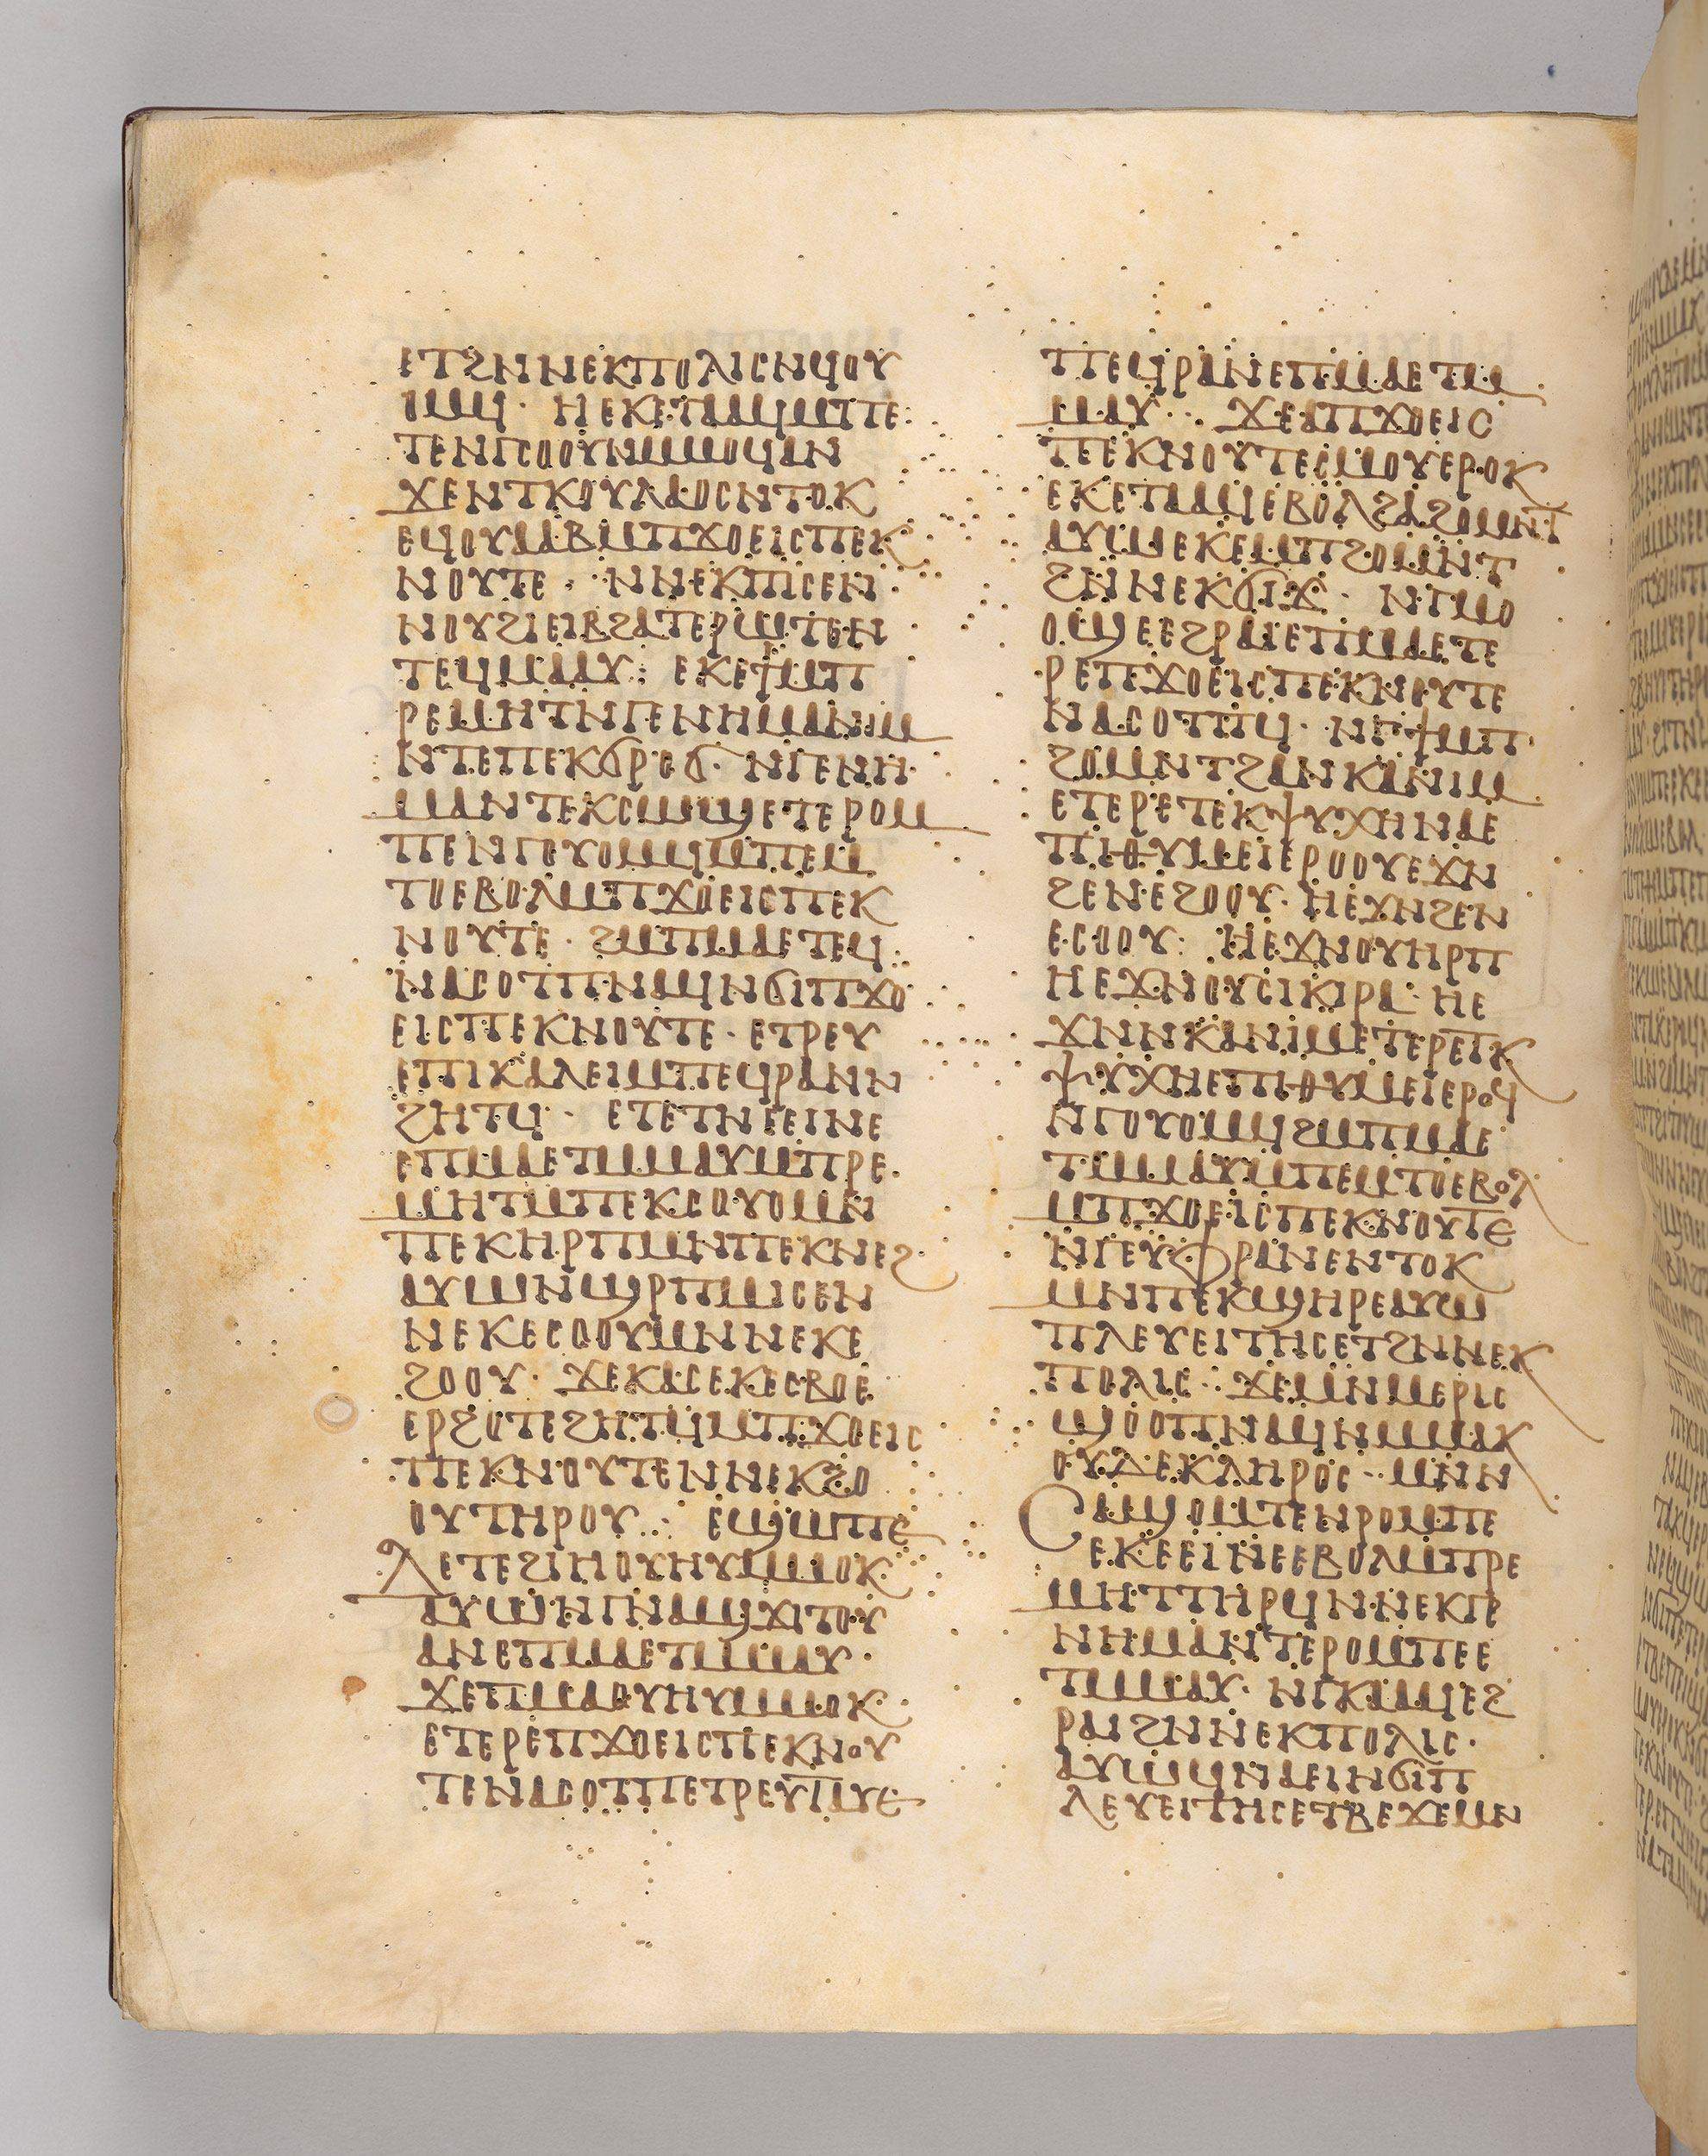 ⲉⲧϩⲛⲛⲉⲕⲡⲟⲗⲓⲥⲛϥⲟⲩ
ⲟⲙϥ· ⲏⲉⲕⲉⲧⲁⲁϥⲙⲡⲉ
ⲧⲉⲛⲅⲥⲟⲟⲩⲛⲙⲙⲟϥⲁⲛ
ϫⲉⲛⲧⲕⲟⲩⲗⲁⲟⲥⲛⲧⲟⲕ
ⲉϥⲟⲩⲁⲁⲃⲙⲡϫⲟⲉⲓⲥⲡⲉⲕ
ⲛⲟⲩⲧⲉ· ⲛⲛⲉⲕⲡⲓⲥⲉⲛ
ⲛⲟⲩϩⲓⲉⲓⲃϩⲁⲧⲉⲣⲱⲧⲉⲛ
ⲧⲉϥⲙⲁⲁⲩ: ⲉⲕⲉϯⲙⲡ
ⲣⲉⲙⲏⲧⲛⲅⲉⲛⲏⲙⲁⲛⲓⲙ
ⲛⲧⲉⲡⲉⲕϭⲣⲟϭ· ⲛⲅⲉⲛⲏ
ⲙⲁⲛⲧⲉⲕⲥⲱϣⲉⲧⲉⲣⲟⲙ
ⲡⲉⲛⲅⲟⲩⲟⲙϥⲙⲡⲉⲙ
ⲧⲟⲉⲃⲟⲗⲙⲡϫⲟⲉⲓⲥⲡⲉⲕ
ⲛⲟⲩⲧⲉ· ϩⲙⲡⲙⲁⲉⲧⲉϥ
ⲛⲁⲥⲟⲧⲡⲛⲁϥⲛϭⲓⲡϫⲟ
ⲉⲓⲥⲡⲉⲕⲛⲟⲩⲧⲉ· ⲉⲧⲣⲉⲩ
ⲉⲡⲓⲕⲁⲗⲉⲓⲙⲡⲉϥⲣⲁⲛⲛ
ϩⲏⲧϥ· ⲉⲧⲉⲧⲛⲉⲉⲓⲛⲉ
ⲉⲡⲙⲁⲉⲧⲙⲙⲁⲩⲙⲡⲣⲉ
ⲙⲏⲧⲙⲡⲉⲕⲥⲟⲩⲟⲙⲛ
ⲡⲉⲕⲏⲣⲡⲙⲛⲡⲉⲕⲛⲉϩ
ⲁⲩⲱⲛϣⲣⲡⲙⲓⲥⲉⲛ
ⲛⲉⲕⲉⲥⲟⲟⲩⲙⲛⲛⲉⲕⲉ
ϩⲟⲟⲩ· ϫⲉⲕⲁⲥⲉⲕⲉⲥⲃⲟⲉ
ⲉⲣϩⲟⲧⲉϩⲏⲧϥⲙⲡϫⲟⲉⲓⲥ
ⲡⲉⲕⲛⲟⲩⲧⲉⲛⲛⲉⲕϩⲟ
ⲟⲩⲧⲏⲣⲟⲩ: ⲉϣⲱⲡⲉ
ⲇⲉⲧⲉϩⲓⲏⲟⲩⲏⲩⲙⲙⲟⲕ
ⲁⲩⲱⲛⲅⲛⲁϣϫⲓⲧⲟⲩ
ⲁⲛⲉⲡⲙⲁⲉⲧⲙⲙⲁⲩ·
ϫⲉⲡⲙⲁⲟⲩⲏⲩⲙⲙⲟⲕ·
ⲉⲧⲉⲣⲉⲡϫⲟⲉⲓⲥⲡⲉⲕⲛⲟⲩ
ⲧⲉⲛⲁⲥⲟⲧⲡⲉⲧⲣⲉⲩⲧⲁⲩⲉ
ⲡⲉϥⲣⲁⲛⲉⲡⲙⲁⲉⲧⲙ
ⲙⲁⲩ·· ϫⲉⲁⲡϫⲟⲉⲓⲥ
ⲡⲉⲕⲛⲟⲩⲧⲉⲥⲙⲟⲩⲉⲣⲟⲕ
ⲉⲕⲉⲧⲁⲁϥⲉⲃⲟⲗϩⲁϩⲟⲙⲛⲧ
ⲁⲩⲱⲉⲕⲉϫⲓⲙⲡϩⲟⲙⲛⲧ
ϩⲛⲛⲉⲕϭⲓϫ· ⲛⲅⲙⲟ
ⲟϣⲉⲉϩⲣⲁⲓⲉⲡⲙⲁⲉⲧⲉ
ⲣⲉⲡϫⲟⲉⲓⲥⲡⲉⲕⲛⲟⲩⲧⲉ
ⲛⲁⲥⲟⲧⲡϥ· ⲛⲅϯⲙⲡ
ϩⲟⲙⲛⲧϩⲁⲛⲕⲁⲛⲓⲙ
ⲉⲧⲉⲣⲉⲧⲉⲕⲯⲩⲭⲏⲛⲁⲉ
ⲡⲓⲑⲩⲙⲉⲓⲉⲣⲟⲟⲩⲉϫⲛ
ϩⲉⲛⲉϩⲟⲟⲩ· ⲏⲉϫⲛϩⲉⲛ
ⲉⲥⲟⲟⲩ: ⲏⲉϫⲛⲟⲩⲏⲣⲡ
ⲏⲉϫⲛⲟⲩⲥⲓⲕⲓⲣⲁ· ⲏⲉ
ϫⲛⲛⲕⲁⲛⲓⲙⲉⲧⲉⲣⲉⲧⲕ
ⲯⲩⲭⲏⲉⲡⲓⲑⲩⲙⲉⲓⲉⲣⲟϥ
ⲛⲅⲟⲩⲟⲙϥϩⲙⲡⲙⲁⲉ
ⲧⲙⲙⲁⲩⲙⲡⲉⲙⲧⲟⲉⲃⲟⲗ
ⲙⲡϫⲟⲉⲓⲥⲡⲉⲕⲛⲟⲩⲧⲉ
ⲛⲅⲉⲩⲫⲣⲁⲛⲉⲛⲧⲟⲕ
ⲙⲛⲡⲉⲕϣⲏⲣⲉⲁⲩⲱ
ⲡⲗⲉⲩⲉⲓⲧⲏⲥⲉⲧϩⲛⲛⲉⲕ
ⲡⲟⲗⲓⲥ·· ϫⲉⲙⲛⲙⲉⲣⲓⲥ
ϣⲟⲟⲡⲛⲁϥⲛⲙⲙⲁⲕ
ⲟⲩⲇⲉⲕⲗⲏⲣⲟⲥ·· ⲙⲛⲛ
ⲥⲁϣⲟⲙⲧⲉⲛⲣⲟⲙⲡⲉ
ⲉⲕⲉⲉⲓⲛⲉⲉⲃⲟⲗⲙⲡⲣⲉ
ⲙⲏⲧⲧⲏⲣϥⲛⲛⲉⲕⲅⲉ
ⲛⲏⲙⲁⲛⲧⲉⲣⲟⲙⲡⲉⲉ
ⲧⲙⲙⲁⲩ· ⲛⲅⲕⲁⲁϥⲉϩ
ⲣⲁⲓϩⲛⲛⲉⲕⲡⲟⲗⲓⲥ·
ⲁⲩⲱϥⲛⲁⲉⲓⲛϭⲓⲡ
ⲗⲉⲩⲉⲓⲧⲏⲥⲉⲧⲃⲉϫⲉⲙⲛ